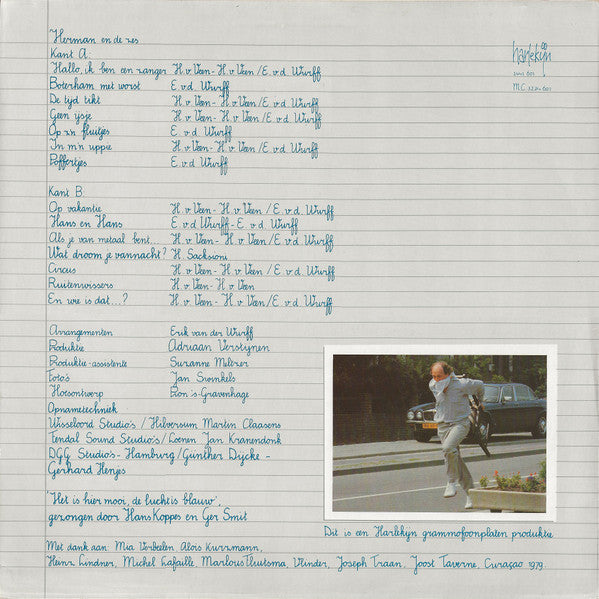 Herman en de zes
Kant A:
Hallo, ik ben een zanger H. v. Veen - H. v. Veen / E. v.d. Wurff
Boterham met worst E. v.d. Wurff
De tijd tikt H. v. Veen - H. v. Veen / E. v.d. Wurff
Geen ijsje H. v. Veen - H. v. Veen / E. v.d. Wurff
Op z'n fluitjes E. v.d. Wurff
In m'n uppie H. v. Veen - H. v. Veen / E. v.d. Wurff
Poffertjes E. v.d. Wurff
Kant B:
Op vakantie H. v. Veen - H. v. Veen / E. v.d. Wurff
Hans en Hans E. v.d. Wurff - E. v.d. Wurff
Als je van metaal bent H. v. Veen - H. v. Veen / E. v.d. Wurff
Wat droom je vannacht? H. Sacksioni
Circus H. v. Veen - H. v. Veen / E. v.d. Wurff
Ruitenwissers H. v. Veen - H. v. Veen
En wie is dat...? H. v. Veen - H. v. Veen / E. v.d. Wurff
Arrangementen Erik van der Wurff
Produktie Adriaan Verstijnen
Produktie-assistente Suzanne
Foto's Jan Swinkels
Hoesontwerp Ron 's-Gravenhage
Opnametechniek
Wisseloord Studio's / Hilversum Martin Claasens
Fendal Sound Studio's / Loenen Jan Kranendonk
DGG Studio's - Hamburg / Günther
Gerhard Henjes
'Het is hier mooi, de lucht is blauw',
gezongen door Hans Koppes en Ger Smit
Met dank aan: Mia Verbeelen Alois Kurzmann,
Heinz Lindner, Michel Lafaille, Marlous Fluitsma, Vlinder, Joseph Traan, Joost Taverne, Curaçao 1979.
harlekijn
MC
Dit is een Harlekijn grammofoonplaten produktie